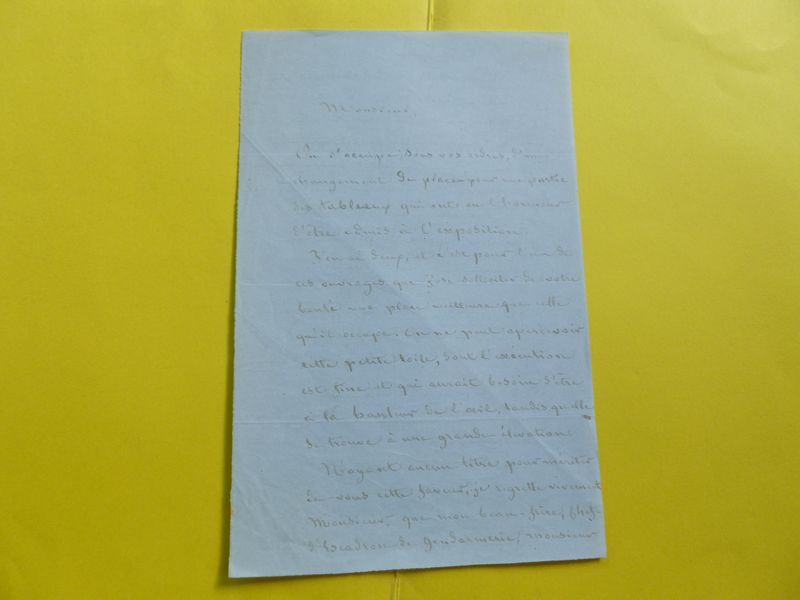 Monsieur,
On s'occupe, sous vos ordres, d'un
changement de places pour une partie
des tableaux qui ont eu l'honneur
d'être admis à l'exposition.
J'en ai deux, et c'est pour l'un de
ces ouvrages que j'ose solliciter de votre
bonté une place meilleure que celle
qu'il occupe. On ne peut apercevoir
cette petite toile, dont l'exécution
est fine et qui aurait besoin d'être
à la hauteur de l'œil, tandis qu'elle
se trouve à une grande élévation.
N'ayant aucun titre pour mériter
de vous cette faveur, je regrette vivement
Monsieur, que mon beau-frère, chef-
d'Escadron de gendarmerie, monsieur